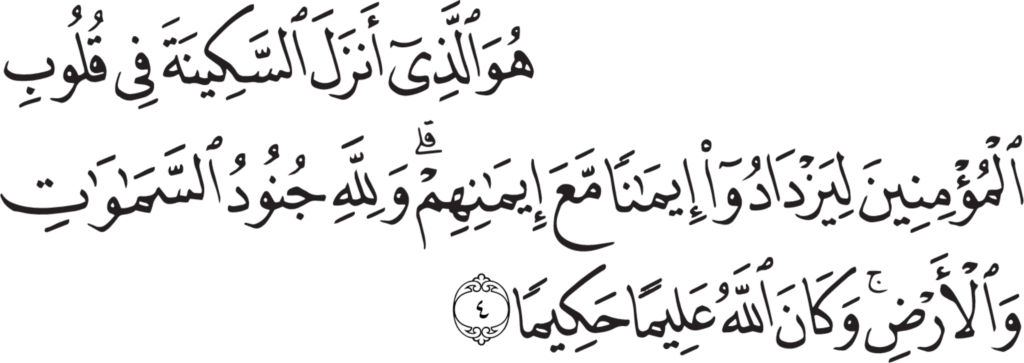 هُوَ ٱلَّذِىٓ أَنزَلَ ٱلسَّكِينَةَ فِى قُلُوبِ
ٱلْمُؤْمِنِينَ لِيَزْدَادُوٓا۟ إِيمَـٰنًا مَّعَ إِيمَـٰنِهِمْ ۗ وَلِلَّهِ جُنُودُ ٱلسَّمَـٰوَٰتِ
وَٱلْأَرْضِ ۚ وَكَانَ ٱللَّهُ عَلِيمًا حَكِيمًا ٤